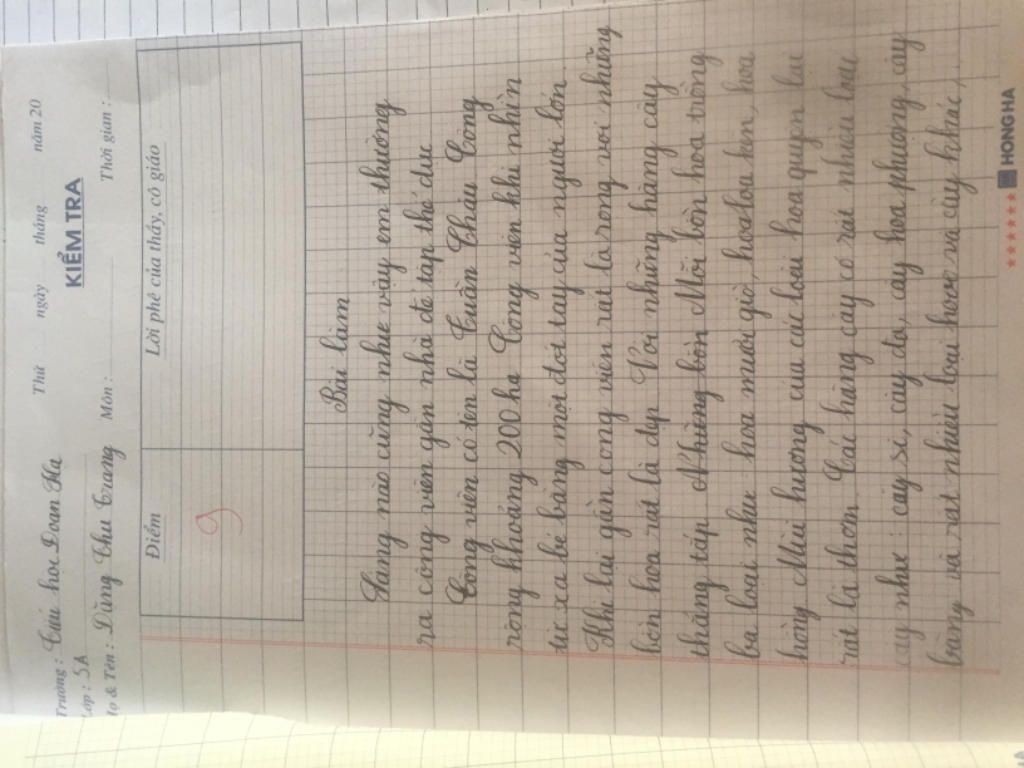 Thứ ngày tháng năm 20
Trường: Tiểu học Doan Hạ
KIỂM TRA
Lớp: 5A
Họ & Tên: Dùng Thu Trang Môn: Thời gian:
Điểm Lời phê của thầy, cô giáo
9
Bài làm
Sáng nào cũng như vậy em thường
ra công viên gần nhà để tập thể dục
Công viên có tên là Tuần Châu Công
rông khoảng 200 ha Công viên khi nhìn
từ xa bé bằng một đôi tay của người lớn
Khi lại gần công viên rất là rong với những
bồn hoa rất là đẹp Với những hàng cây
thẳng tắp Những bồn Mỗi bồn hoa trồng
ba loai như hoa mười giờ, hoa loa ken, hoa
hồng Mùi hương của các loài hoa quyện lại
rất là thơm Các hàng cây có rất nhiều loại
cây như: cây si, cây đa, cây hoa phượng, cây
bằng và rất nhiều loại hoa và cây khác,
HONG HA